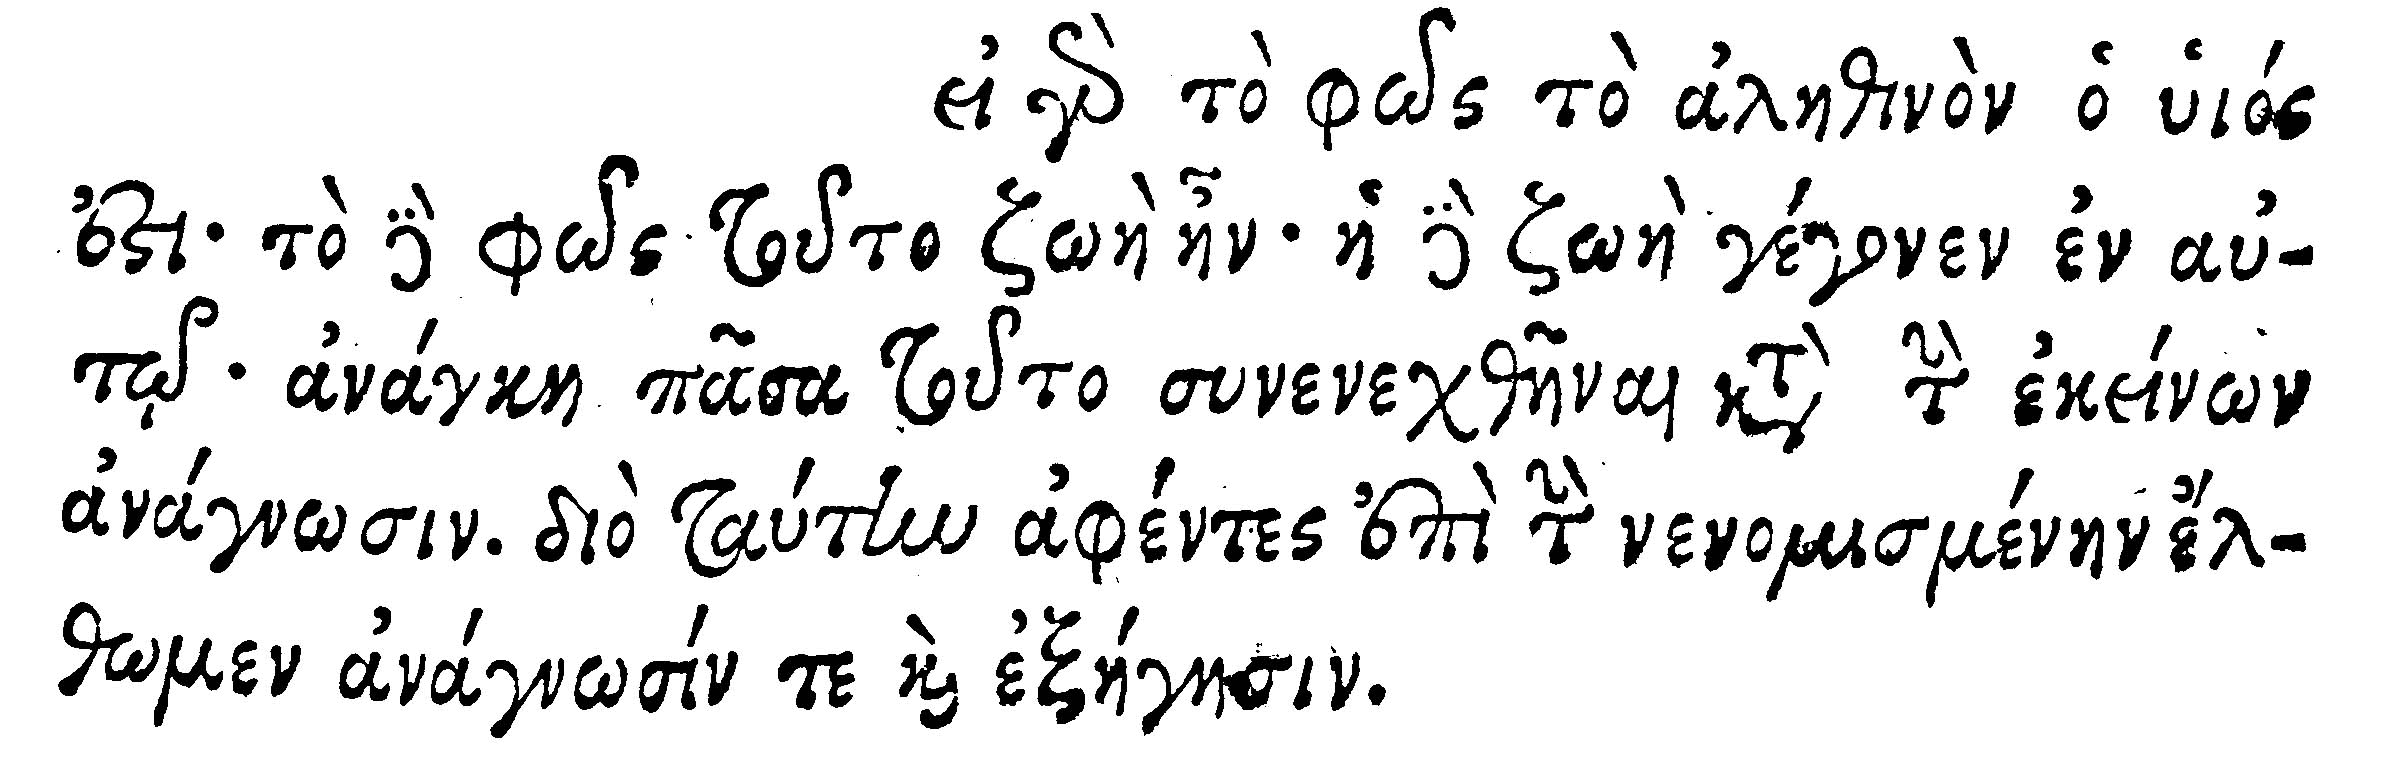 εἰ γὰρ τὸ φῶς τὸ ἀληθινὸν ὁ ὑιός
ἐστι· τὸ δὲ φῶς τοῦτο ζωὴ ἦν· ἡ δὲ ζωὴ γέγονεν ἐν αὐ-
τῷ· ἀνάγκη πᾶσα τοῦτο συνενεχθῆναι κατὰ τὴν ἐκείνων
ἀνάγνωσιν. διὸ ταύτην ἀφέντες ἐπὶ τὴν νενομισμένην ἔλ-
θωμεν ἀνάγνωσίν τε καὶ ἐξήγησιν.